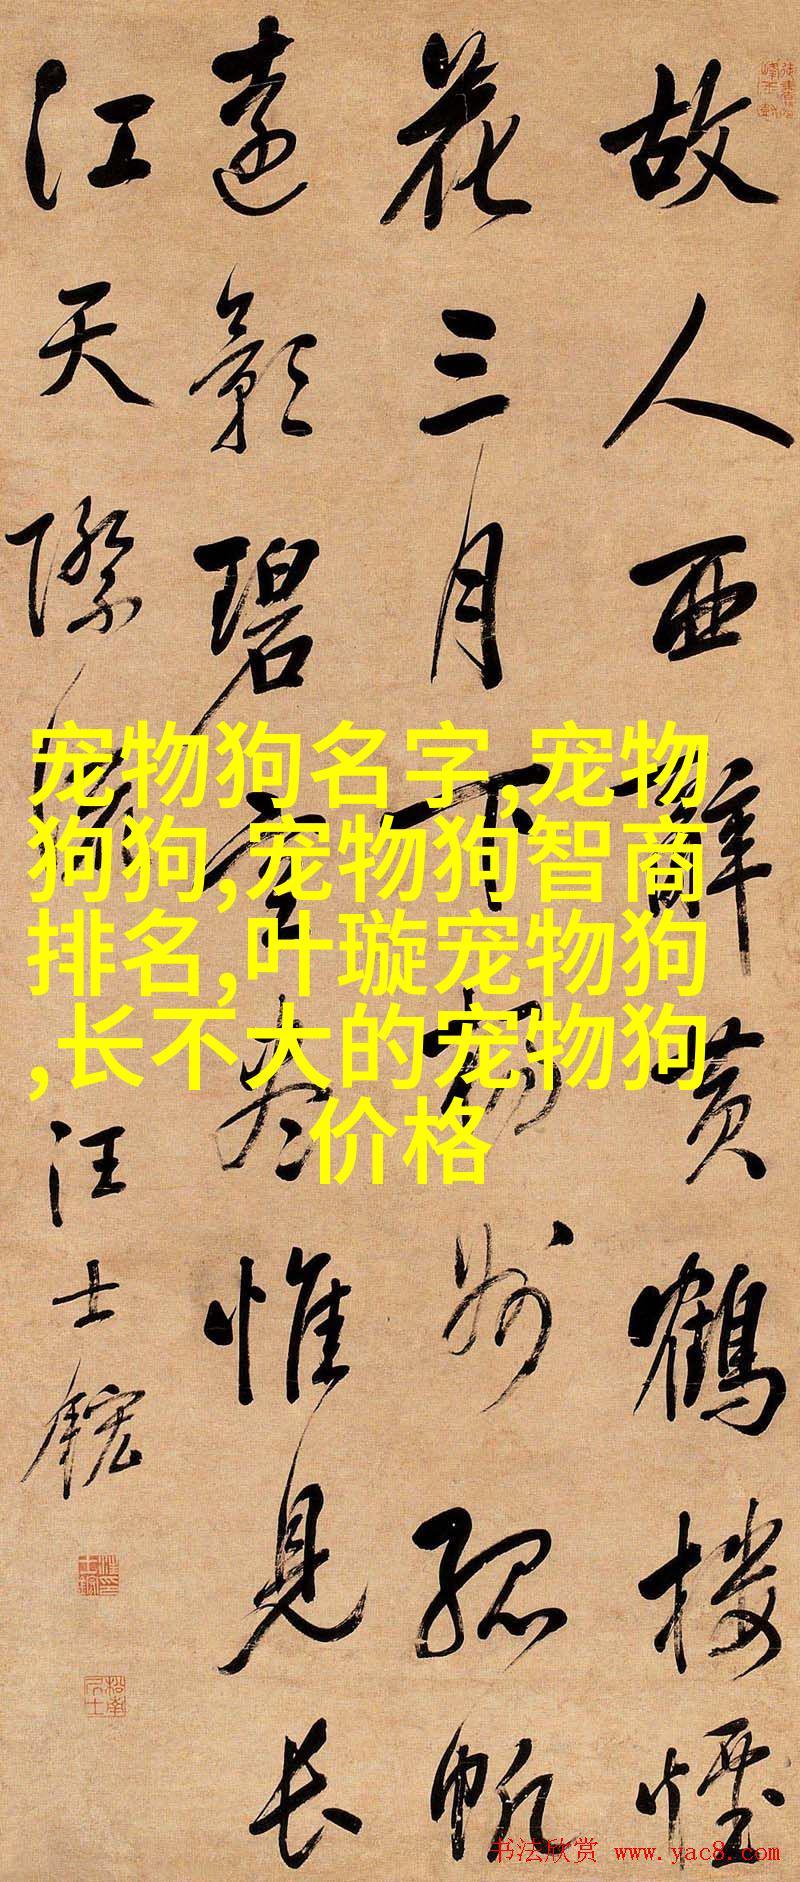 故人西辞黄鹤楼烟
花三月下扬州孤帆
远影碧空尽惟见长
江天际流
汪士鋐
宠物狗名字,宠物
狗狗,宠物狗智商
排名,叶璇宠物狗
,长不大的宠物狗
价格
书法欣赏 www.yac8.com